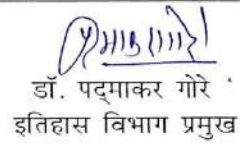 डॉ. पद्माकर गोरे
इतिहास विभाग प्रमुख